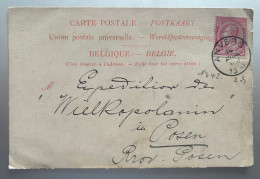 CARTE POSTALE — POSTKAART
Union postale universelle. — Wereldpostvereeniging
BELGIQUE — BELGIË.
(Côté réservé à l'adresse. — Zijde voor het adres alleen.)
ANVERS
M Expedition des
"Wielkopolanin"
in Posen
Prov. Posen